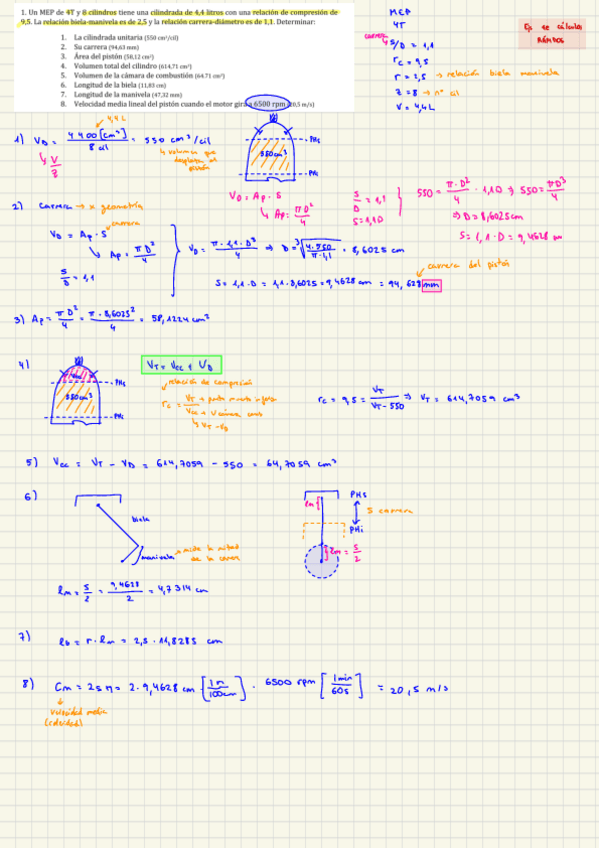 1. Un MEP de 4T y 8 cilindros tiene una cilindrada de 4,4 litros con una relación de compresión de
9,5. La relación biela-manivela es de 2,5 y la relación carrera-diámetro es de 1,1. Determinar:
1. La cilindrada unitaria (550 cm³/cil)
2. Su carrera (94,63 mm)
3. Área del pistón (58,12 cm²)
4. Volumen total del cilindro (614,71 cm³)
5. Volumen de la cámara de combustión (64.71 cm³)
6. Longitud de la biela (11,83 cm)
7. Longitud de la manivela (47,32 mm)
8. Velocidad media lineal del pistón cuando el motor gira a 6500 rpm (20,5 m/s)
MEP
4T
carrera
S/D = 1,1
rc = 9,5
r = 2,5 → relación biela manivela
z = 8 → nº cil
V = 4,4L
Ej de cálculos
RÁPIDOS
4,4L
1) VD = 4400[cm³] / 8 cil = 550 cm³/cil
V/z
volumen que desplaza el pistón
PMS
550cm³
PMi
VD = Ap · S
Ap = πD²/4
S/D = 1,1
S = 1,1D
550 = π·D²/4 · 1,1D ⇒ 550 = πD³/4
⇒ D = 8,6025 cm
S = 1,1 · D = 9,4628 cm
2) Carrera → x geometría
carrera
VD = Ap · S
Ap = πD²/4
S/D = 1,1
VD = π·1,1·D³/4 ⇒ D = ³√(4·550/π·1,1) = 8,6025 cm
carrera del pistón
S = 1,1 · D = 1,1 · 8,6025 = 9,4628 cm = 94,628 mm
3) Ap = πD²/4 = π·8,6025²/4 = 58,1224 cm²
4)
VT = Vcc + VD
PMS
550cm³
PMi
relación de compresión
rc = VT → punto muerto inferior / Vcc → V cámara comb
VT - VD
rc = 9,5 = VT / VT - 550 ⇒ VT = 614,7059 cm³
5) Vcc = VT - VD = 614,7059 - 550 = 64,7059 cm³
6)
biela
manivela → mide la mitad de la carrera
lm
PMS
S carrera
PMi
lm = S/2
lm = S/2 = 9,4628/2 = 4,7314 cm
7) lb = r · lm = 2,5 · 11,8285 cm
8) Cm = 2Sn = 2 · 9,4628 cm [1m/100cm] · 6500 rpm [1min/60s] = 20,5 m/s
velocidad media
(celeridad)